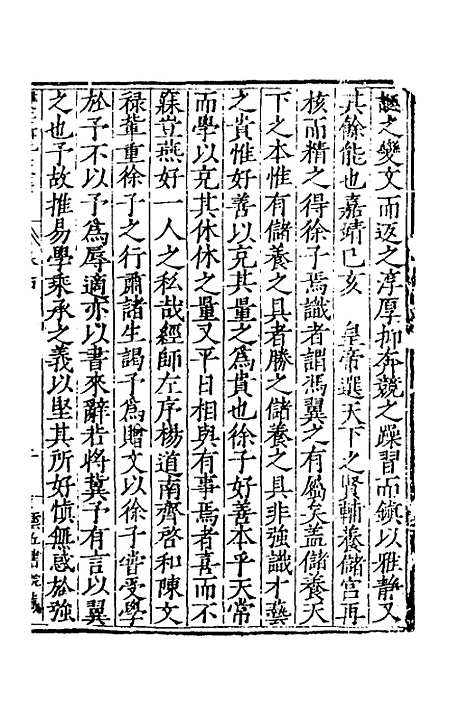 之變文而返之淳厚抑奔競之躁習而鎮以雅靜又
其餘能也嘉靖己亥　皇帝選天下之賢輔養儲宮再
核而精之得徐子焉識者謂馮翼之有屬矣蓋儲養天
下之本惟有儲養之具者勝之儲養之具非強識才藝
之貴惟好善以充其量之為貴也徐子好善本乎天常
而學以充其休休之量又平日相與有事焉者喜而不
寐豈燕好一人之私哉經師左序楊道南齊啓和陳文
祿輩重徐子之行肅諸生謁予為贈文以徐子嘗受學
於予不以予為辱適亦以書來辭若將冀予有言以翼
之也予故推易學乘承之義以堅其所好慎無惑於強